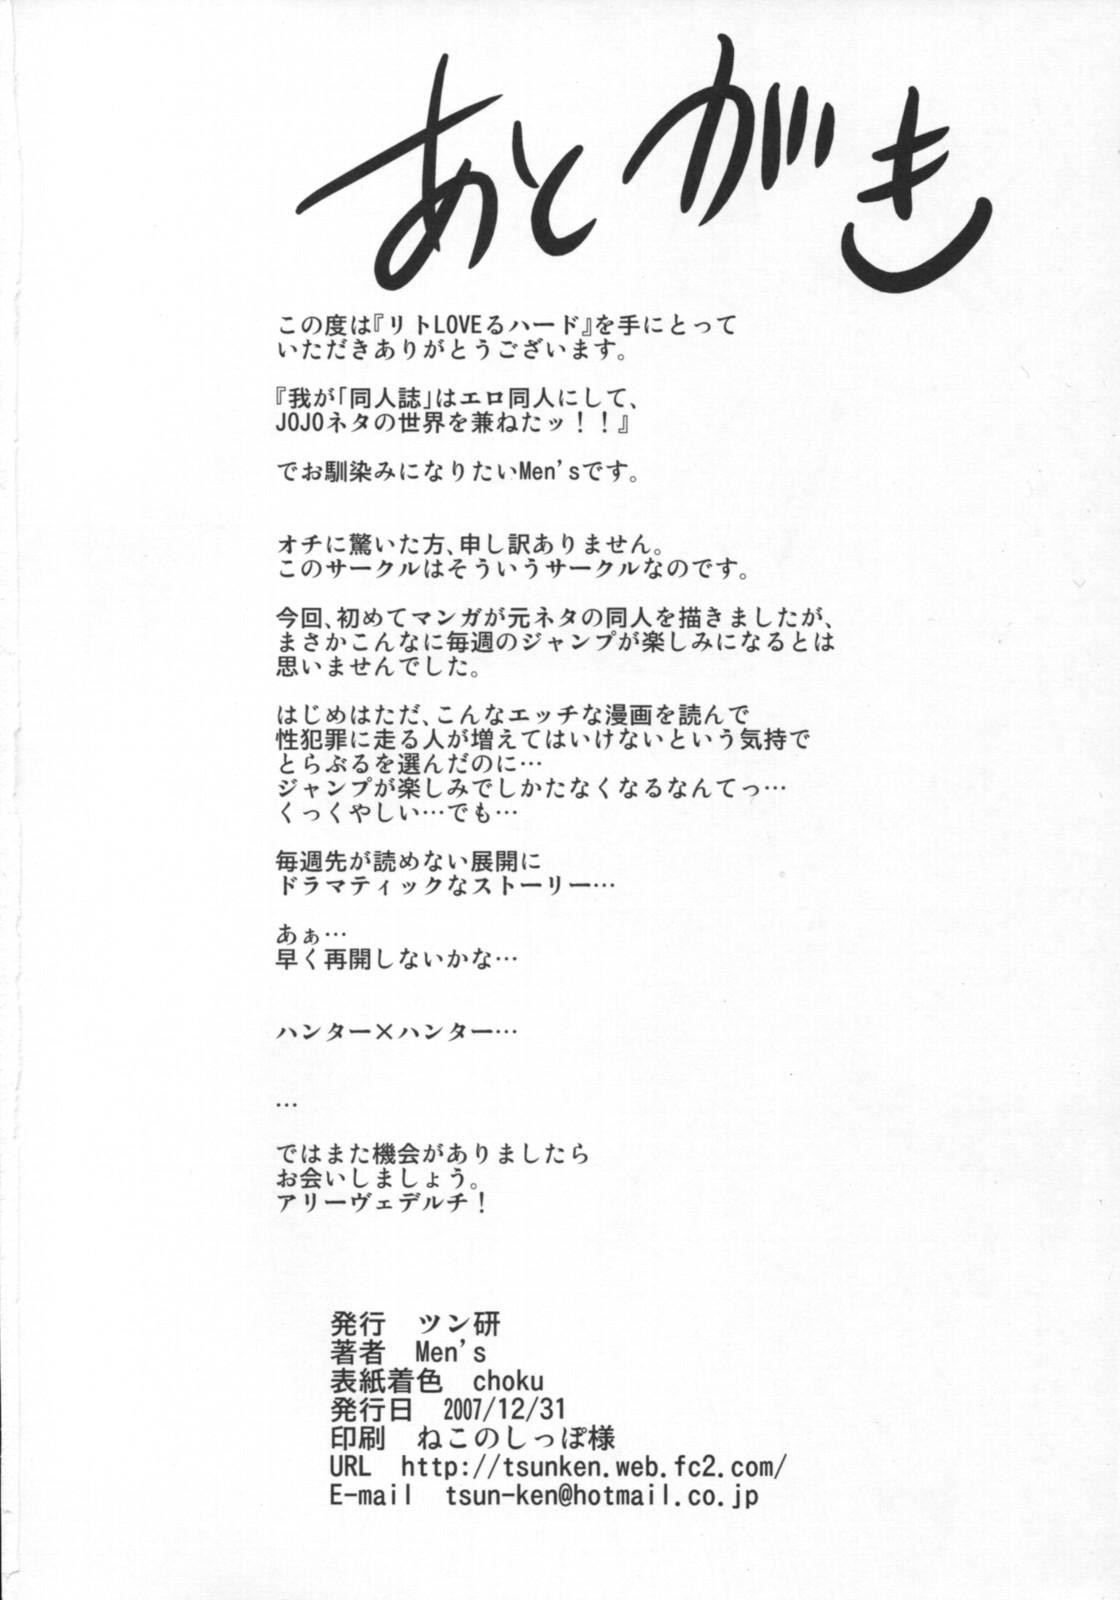 あとがき
この度は『リトLOVEるハード』を手にとって
いただきありがとうございます。
『我が「同人誌」はエロ同人にして、
JOJOネタの世界を兼ねたッ！！』
でお馴染みになりたいMen'sです。
オチに驚いた方、申し訳ありません。
このサークルはそういうサークルなのです。
今回、初めてマンガが元ネタの同人を描きましたが、
まさかこんなに毎週のジャンプが楽しみになるとは
思いませんでした。
はじめはただ、こんなエッチな漫画を読んで
性犯罪に走る人が増えてはいけないという気持で
とらぶるを選んだのに…
ジャンプが楽しみでしかたなくなるなんてっ…
くっくやしい…でも…
毎週先が読めない展開に
ドラマティックなストーリー…
あぁ…
早く再開しないかな…
ハンター×ハンター…
…
ではまた機会がありましたら
お会いしましょう。
アリーヴェデルチ！
発行　ツン研
著者　Men's
表紙着色　choku
発行日　2007/12/31
印刷　ねこのしっぽ様
URL　http://tsunken.web.fc2.com/
E-mail　tsun-ken@hotmail.co.jp